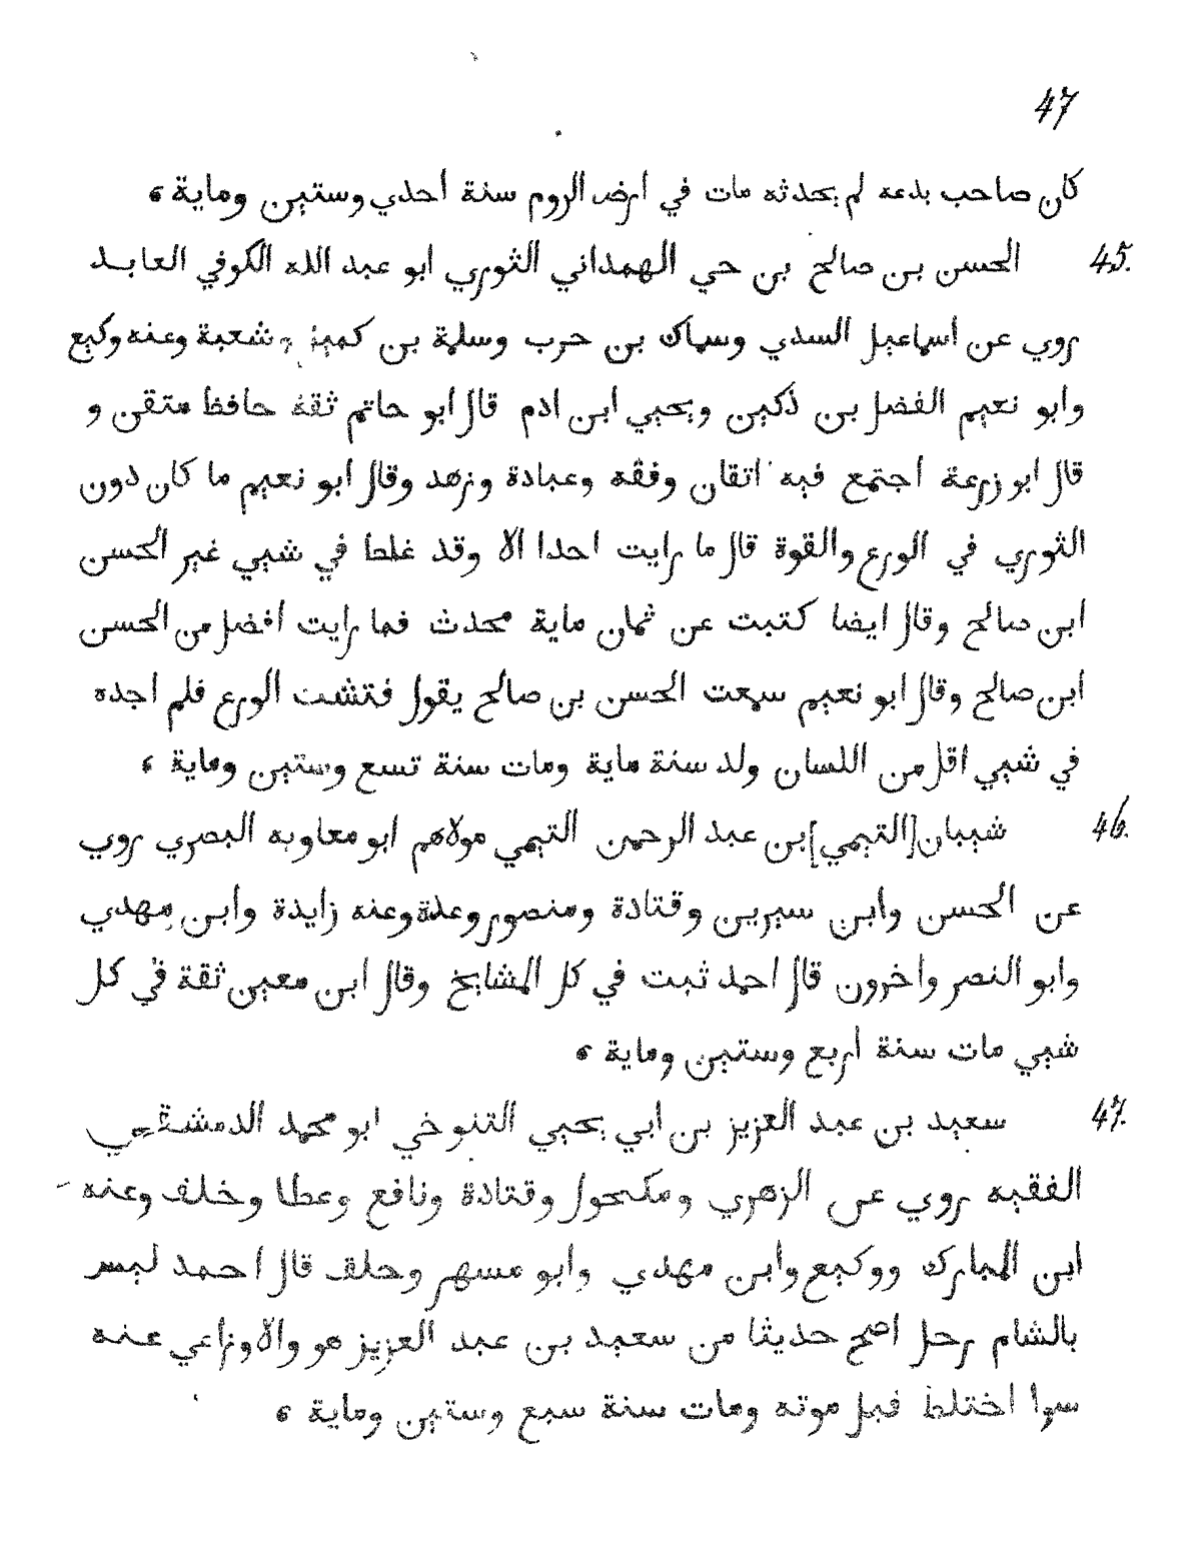 47
كان صاحب بدعه لم يحدثه مات في ارض الروم سنة احدي وستين وماية ،
45. الحسن بن صالح بن حي الهمداني الثوري ابو عبد الله الكوفي العابد
روي عن اسماعيل السدي وسماك بن حرب وسلمة بن شعبة وعنه وكيع
وابو نعيم الفضل بن ذكين ويحيي ابن ادم قال ابو حاتم ثقة حافظ متقن و
قال ابو زرعة اجتمع فيه اتقان وفقه وعبادة وزهد وقال ابو نعيم ما كان دون
الثوري في الورع والقوة قال ما رايت احدا الا وقد غلط في شيي غير الحسن
ابن صالح وقال ايضا كتبت عن ثمان ماية محدث فما رايت افضل من الحسن
ابن صالح وقال ابو نعيم سمعت الحسن بن صالح يقول فتشت الورع فلم اجده
في شيي اقل من اللسان ولد سنة ماية ومات سنة تسع وستين وماية ،
46. شيبان [التيمي] بن عبد الرحمن التيمي مولاهم ابو معاويه البصري روي
عن الحسن وابن سيرين وقتادة ومنصور وعدة وعنه زايدة وابن مهدي
وابو النصر واخرون قال احمد ثبت في كل المشايخ وقال ابن معين ثقة في كل
شيي مات سنة اربع وستين وماية ،
47. سعيد بن عبد العزيز بن ابي يحيي التنوخي ابو محمد الدمشقي
الفقيه روي عن الزهري ومكحول وقتادة ونافع وعطا وخلف وعنه
ابن المبارك ووكيع وابن مهدي وابو مسهر وخلق قال احمد ليس
بالشام رجل اصح حديثا من سعيد بن عبد العزيز هو والاوزاعي عنه
سوا اختلط قبل موته ومات سنة سبع وستين وماية ،